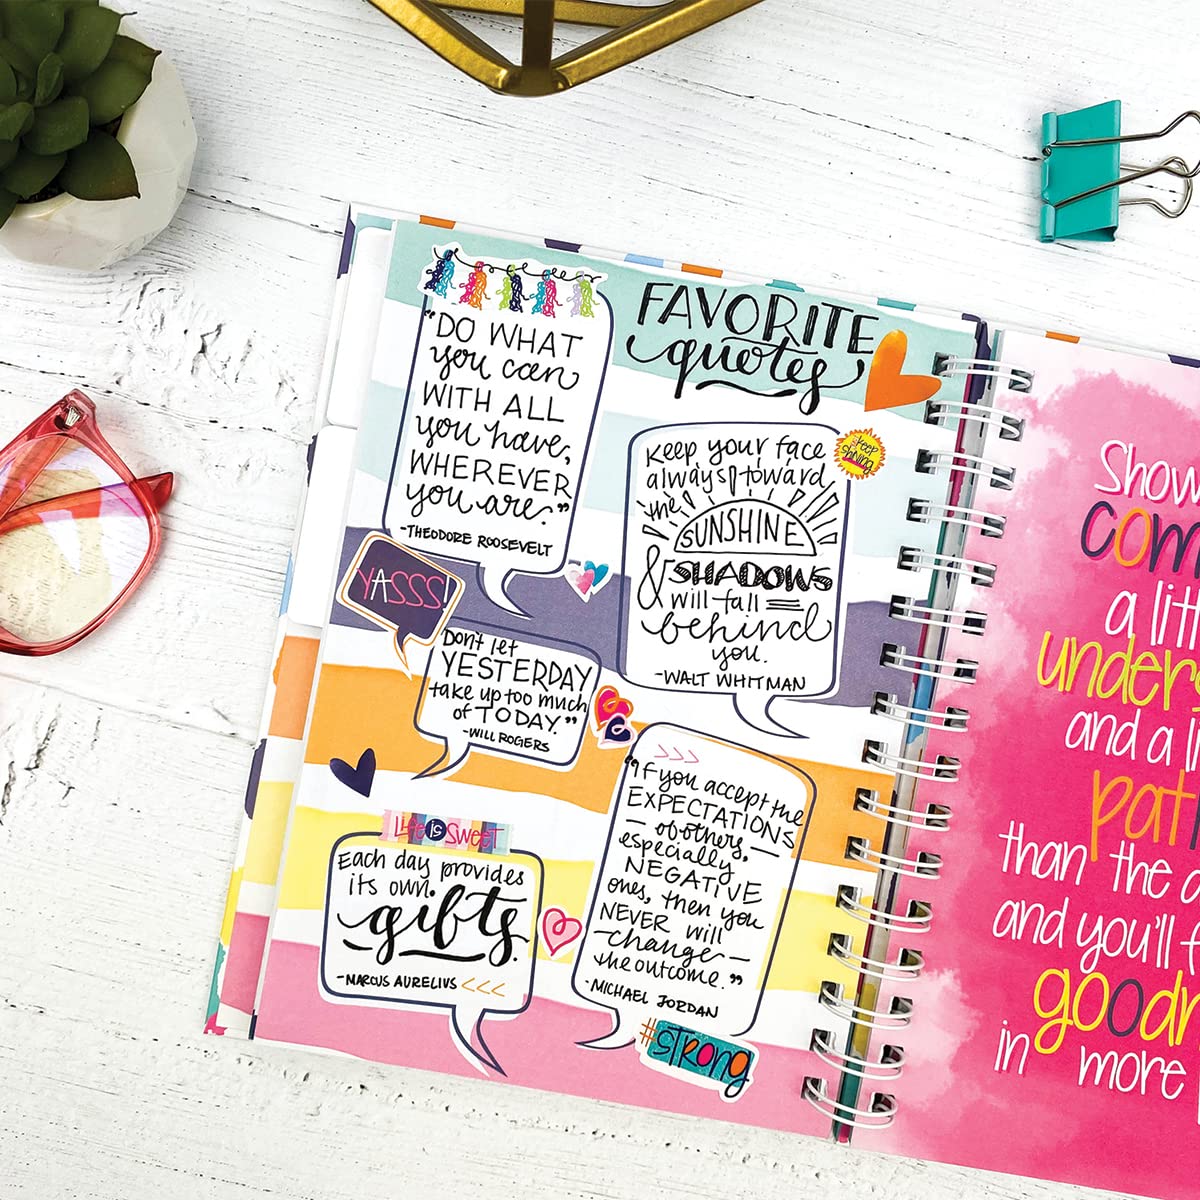 FAVORITE
quotes
"DO WHAT
you can
WITH ALL
you have,
WHEREVER
you are."
-THEODORE ROOSEVELT
Keep your face
always toward
the
SUNSHINE
& SHADOWS
will fall
behind
you.
-WALT WHITMAN
keep
shining
YASSS!
Don't let
YESTERDAY
take up too much
of TODAY."
-WILL ROGERS
>>>
"If you accept the
EXPECTATIONS
-of others,-
especially
NEGATIVE
ones, then you
NEVER will
-change-
the outcome."
-MICHAEL JORDAN
#STRONG
Life is SWEET
Each day provides
its own
gifts.
-MARCUS AURELIUS <<<
Show
COM
a lit
under
and a li
pat
than the
and you'll
good
in more